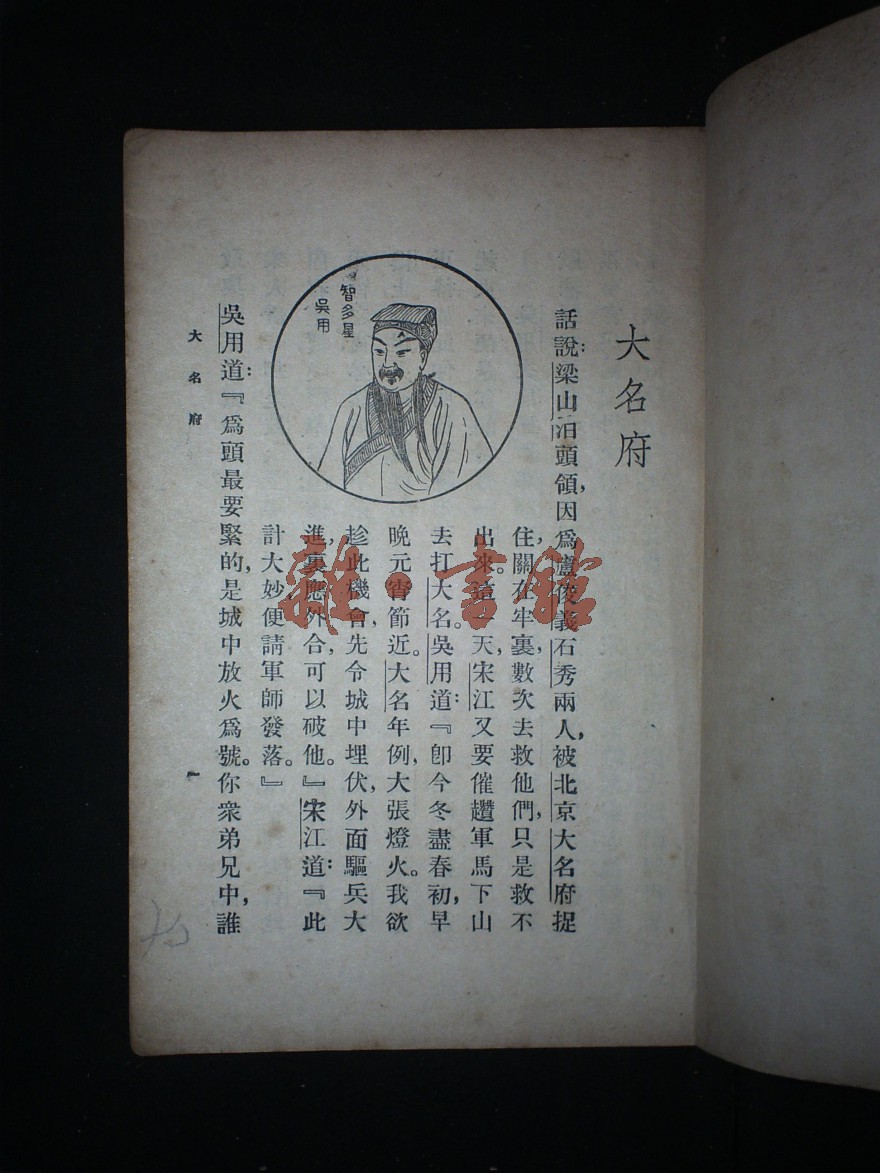 大名府
話說：梁山泊頭領，因爲盧俊義石秀兩人，被北京大名府捉
住，關在牢裏，數次去救他們，只是救不
出來。這一天，宋江又要催趲軍馬下山
去打大名。吳用道：『卽今冬盡春初，早
晚元宵節近。大名年例，大張燈火。我欲
趁此機會，先令城中埋伏，外面驅兵大
進，裏應外合，可以破他。』宋江道：『此
計大妙，便請軍師發落。』
吳用道：『爲頭最要緊的，是城中放火爲號。你衆弟兄中，誰
智多星
吳用
大名府
一
雜·書館